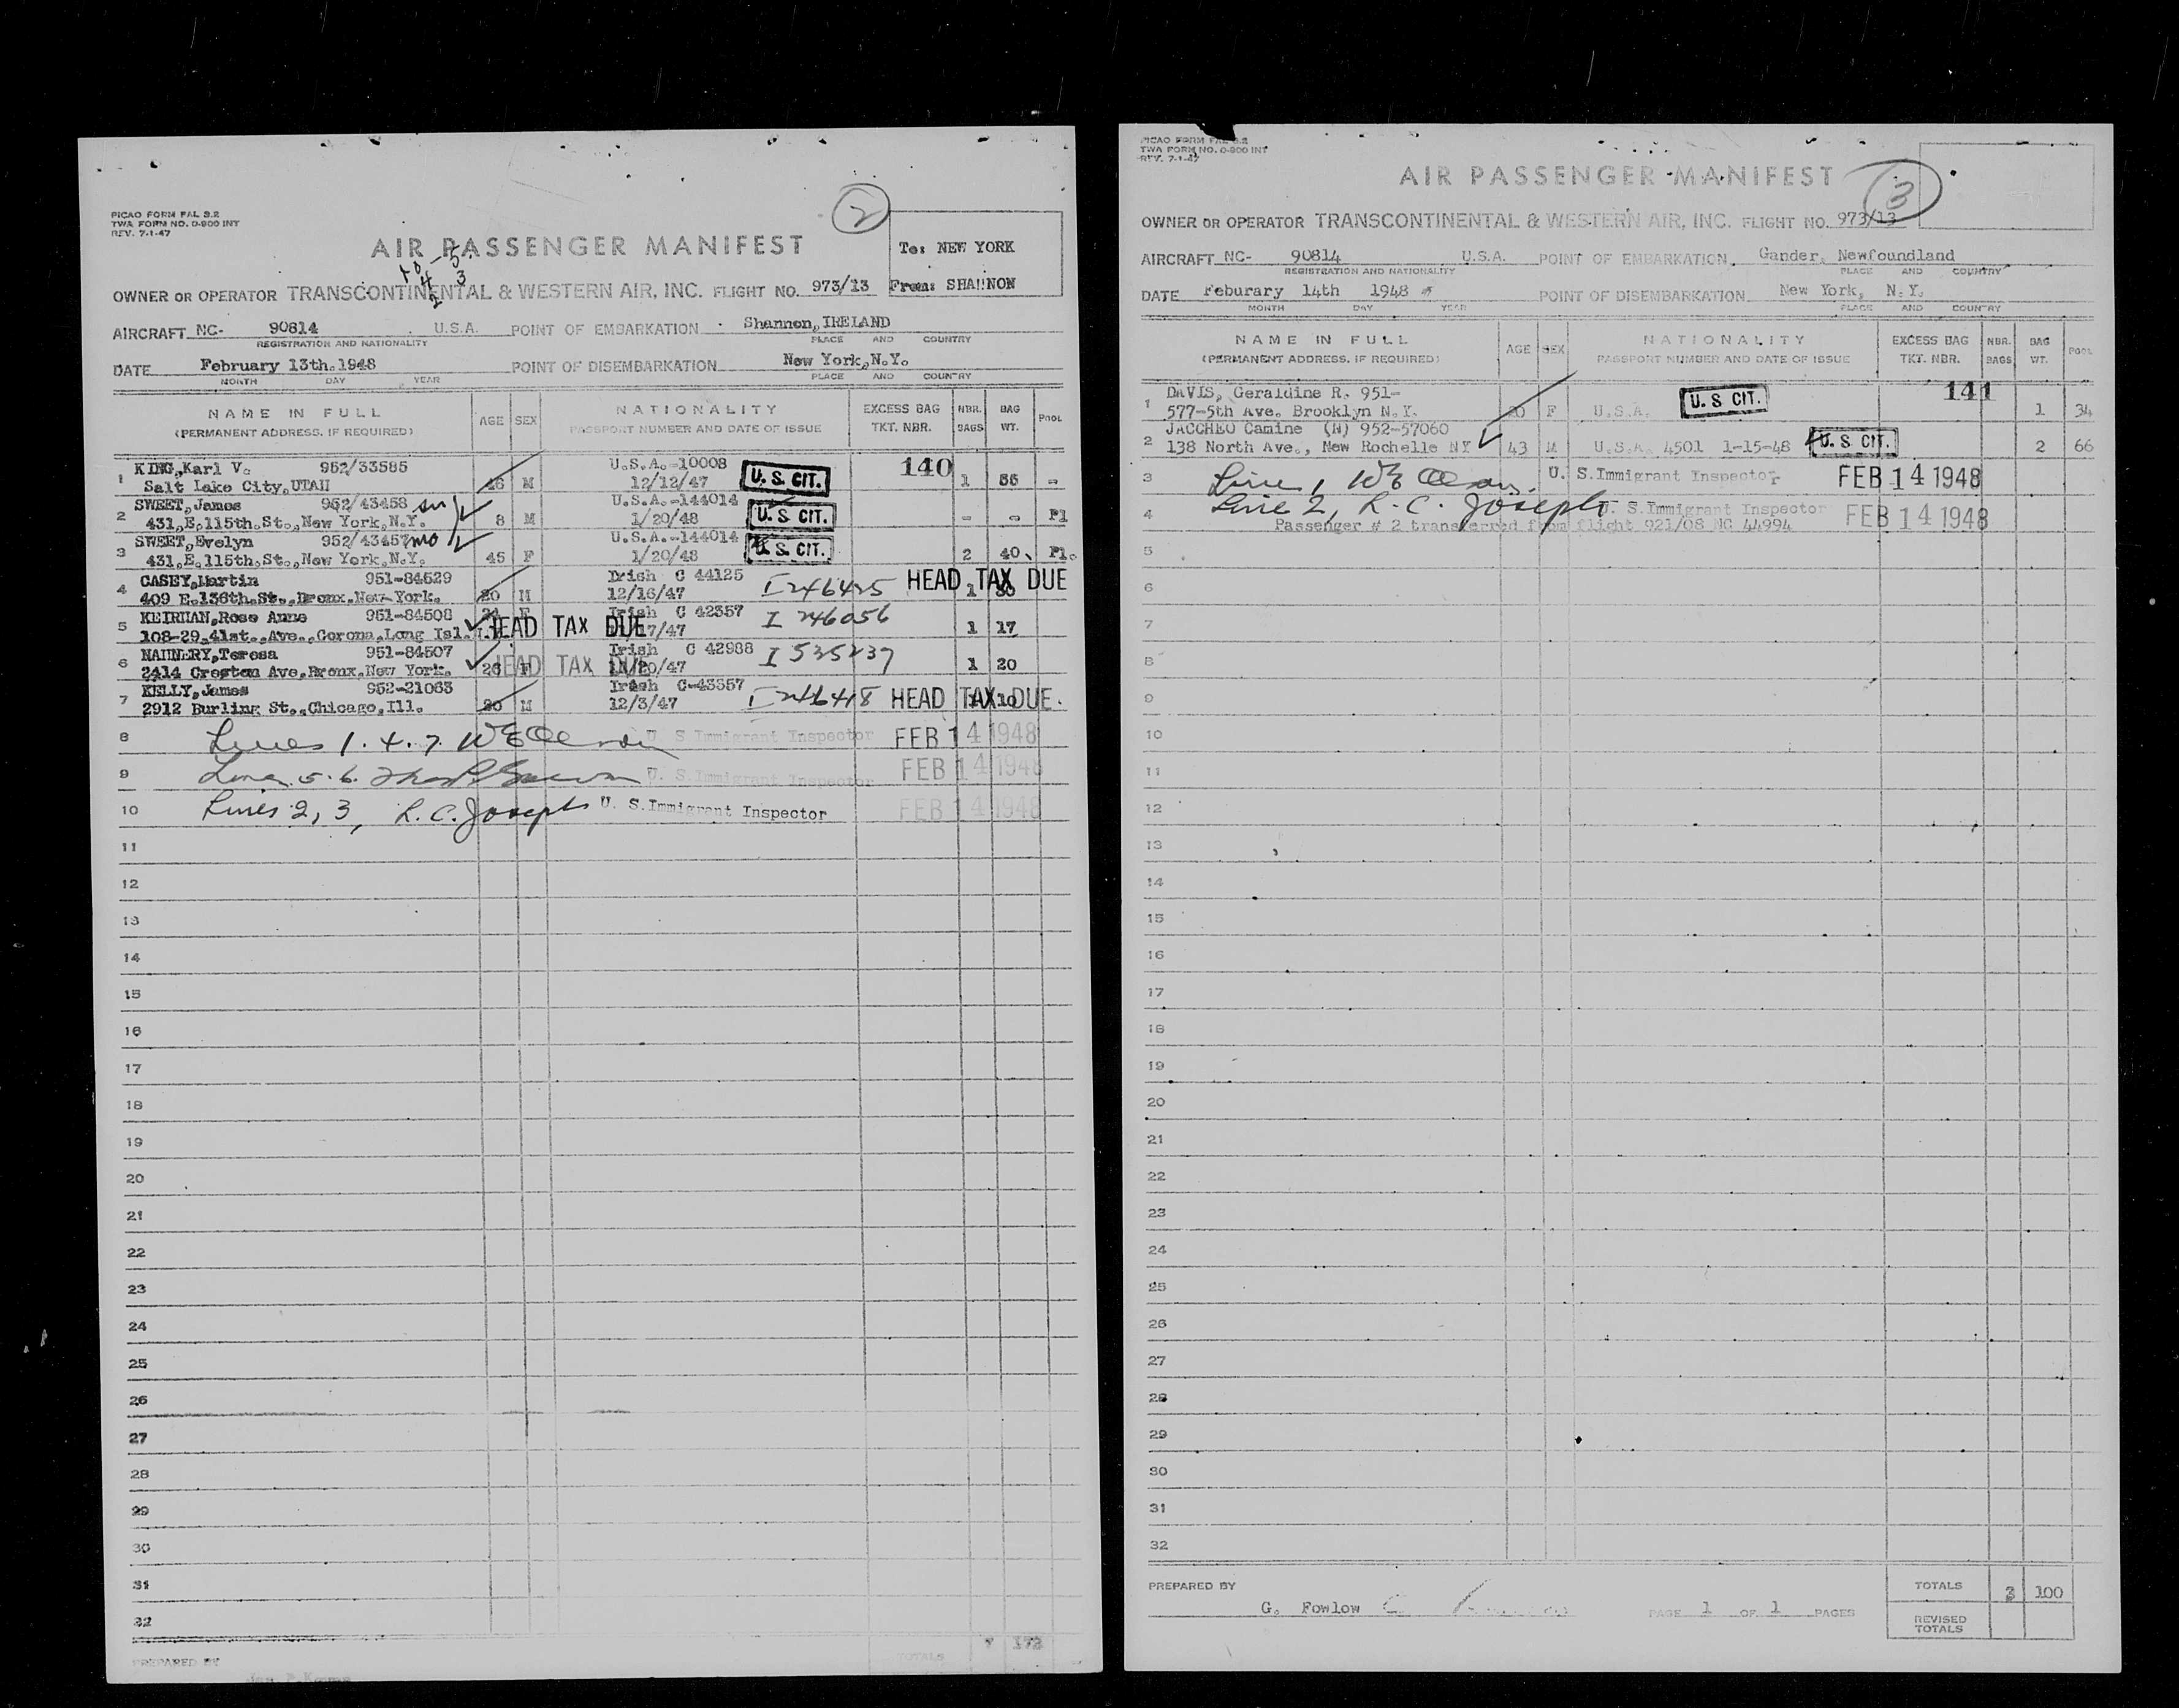 2
PICAO FORM FAL 3.2
TWA FORM NO. 0-900 INT
REV. 7-1-47
AIR PASSENGER MANIFEST
To: NEW YORK
From: SHANNON
OWNER OR OPERATOR TRANSCONTINENTAL & WESTERN AIR, INC. FLIGHT NO. 973/13
AIRCRAFT NC- 90814 U.S.A. POINT OF EMBARKATION Shannon, IRELAND
REGISTRATION AND NATIONALITY PLACE AND COUNTRY
DATE February 13th.1948 POINT OF DISEMBARKATION New York,N.Y.
MONTH DAY YEAR PLACE AND COUNTRY
NAME IN FULL AGE SEX NATIONALITY EXCESS BAG NBR. BAG POOL
(PERMANENT ADDRESS, IF REQUIRED) PASSPORT NUMBER AND DATE OF ISSUE TKT. NBR. BAGS WT.
140
1 KING,Karl V. 952/33585 U.S.A.-10008
Salt Lake City,UTAH M 12/12/47 U.S. CIT. 1 -
2 SWEET,James 952/43458 U.S.A.-144014
431,E,115th.St.,New York,N.Y. 8 M 1/20/48 U.S. CIT. - - Pl
3 SWEET,Evelyn 952/43457 mo U.S.A.-144014
431,E,115th.St.,New York,N.Y. 45 F 1/20/48 U.S. CIT. 2 40 Pl.
4 CASEY,Martin 951-84529 Irish C 44125 HEAD TAX DUE
409 E.136th.St.,Bronx.New-York. M 12/16/47 I 246425 1
5 Rose Anne 951-84508 F Irish C 42357 I 246056
108-29,41st.,Ave.,Corona,Long Isl. HEAD TAX DUE /47 1 17
6 Teresa 951-84507 Irish C 42988 I 535237
2414 Creston Ave.Bronx.New York. 26 F HEAD TAX DUE /47 1 20
7 KELLY,James 952-21063 Irish C-43357
2912 Burling St.,Chicago,Ill. M 12/3/47 I 246418 HEAD TAX DUE 10
8 Lines 1.4.7. U S Immigrant Inspector FEB 14 1948
9 Lines 5.6. U. S.Immigrant Inspector FEB 14 1948
10 Lines 2, 3, L.C. Joseph U. S.Immigrant Inspector FEB 14 1948
11
12
13
14
15
16
17
18
19
20
21
22
23
24
25
26
27
28
29
30
31
32
TOTALS 7 172
PREPARED BY
3
PICAO FORM FAL 3.2
TWA FORM NO. 0-900 INT
REV. 7-1-47
AIR PASSENGER MANIFEST
OWNER OR OPERATOR TRANSCONTINENTAL & WESTERN AIR, INC. FLIGHT NO. 973/13
AIRCRAFT NC- 90814 U.S.A. POINT OF EMBARKATION Gander, Newfoundland
REGISTRATION AND NATIONALITY PLACE AND COUNTRY
DATE Feburary 14th 1948 POINT OF DISEMBARKATION New York, N.Y.
MONTH DAY YEAR PLACE AND COUNTRY
NAME IN FULL AGE SEX NATIONALITY EXCESS BAG NBR. BAG POOL
(PERMANENT ADDRESS, IF REQUIRED) PASSPORT NUMBER AND DATE OF ISSUE TKT. NBR. BAGS WT.
141
1 DAVIS, Geraldine R. 951-
577-5th Ave. Brooklyn N.Y. F U.S.A. U.S CIT. 1 34
2 JACCHEO Camine (N) 952-57060
138 North Ave., New Rochelle NY 43 M U.S.A. 4501 1-15-48 U.S CIT. 2 66
3 Line 1 U. S.Immigrant Inspector FEB 14 1948
4 Line 2, L.C. Joseph U. S.Immigrant Inspector FEB 14 1948
Passenger # 2 transferred from flight 921/08 NC 44994
5
6
7
8
9
10
11
12
13
14
15
16
17
18
19
20
21
22
23
24
25
26
27
28
29
30
31
32
PREPARED BY G. Fowlow PAGE 1 OF 1 PAGES TOTALS 3 100
REVISED TOTALS